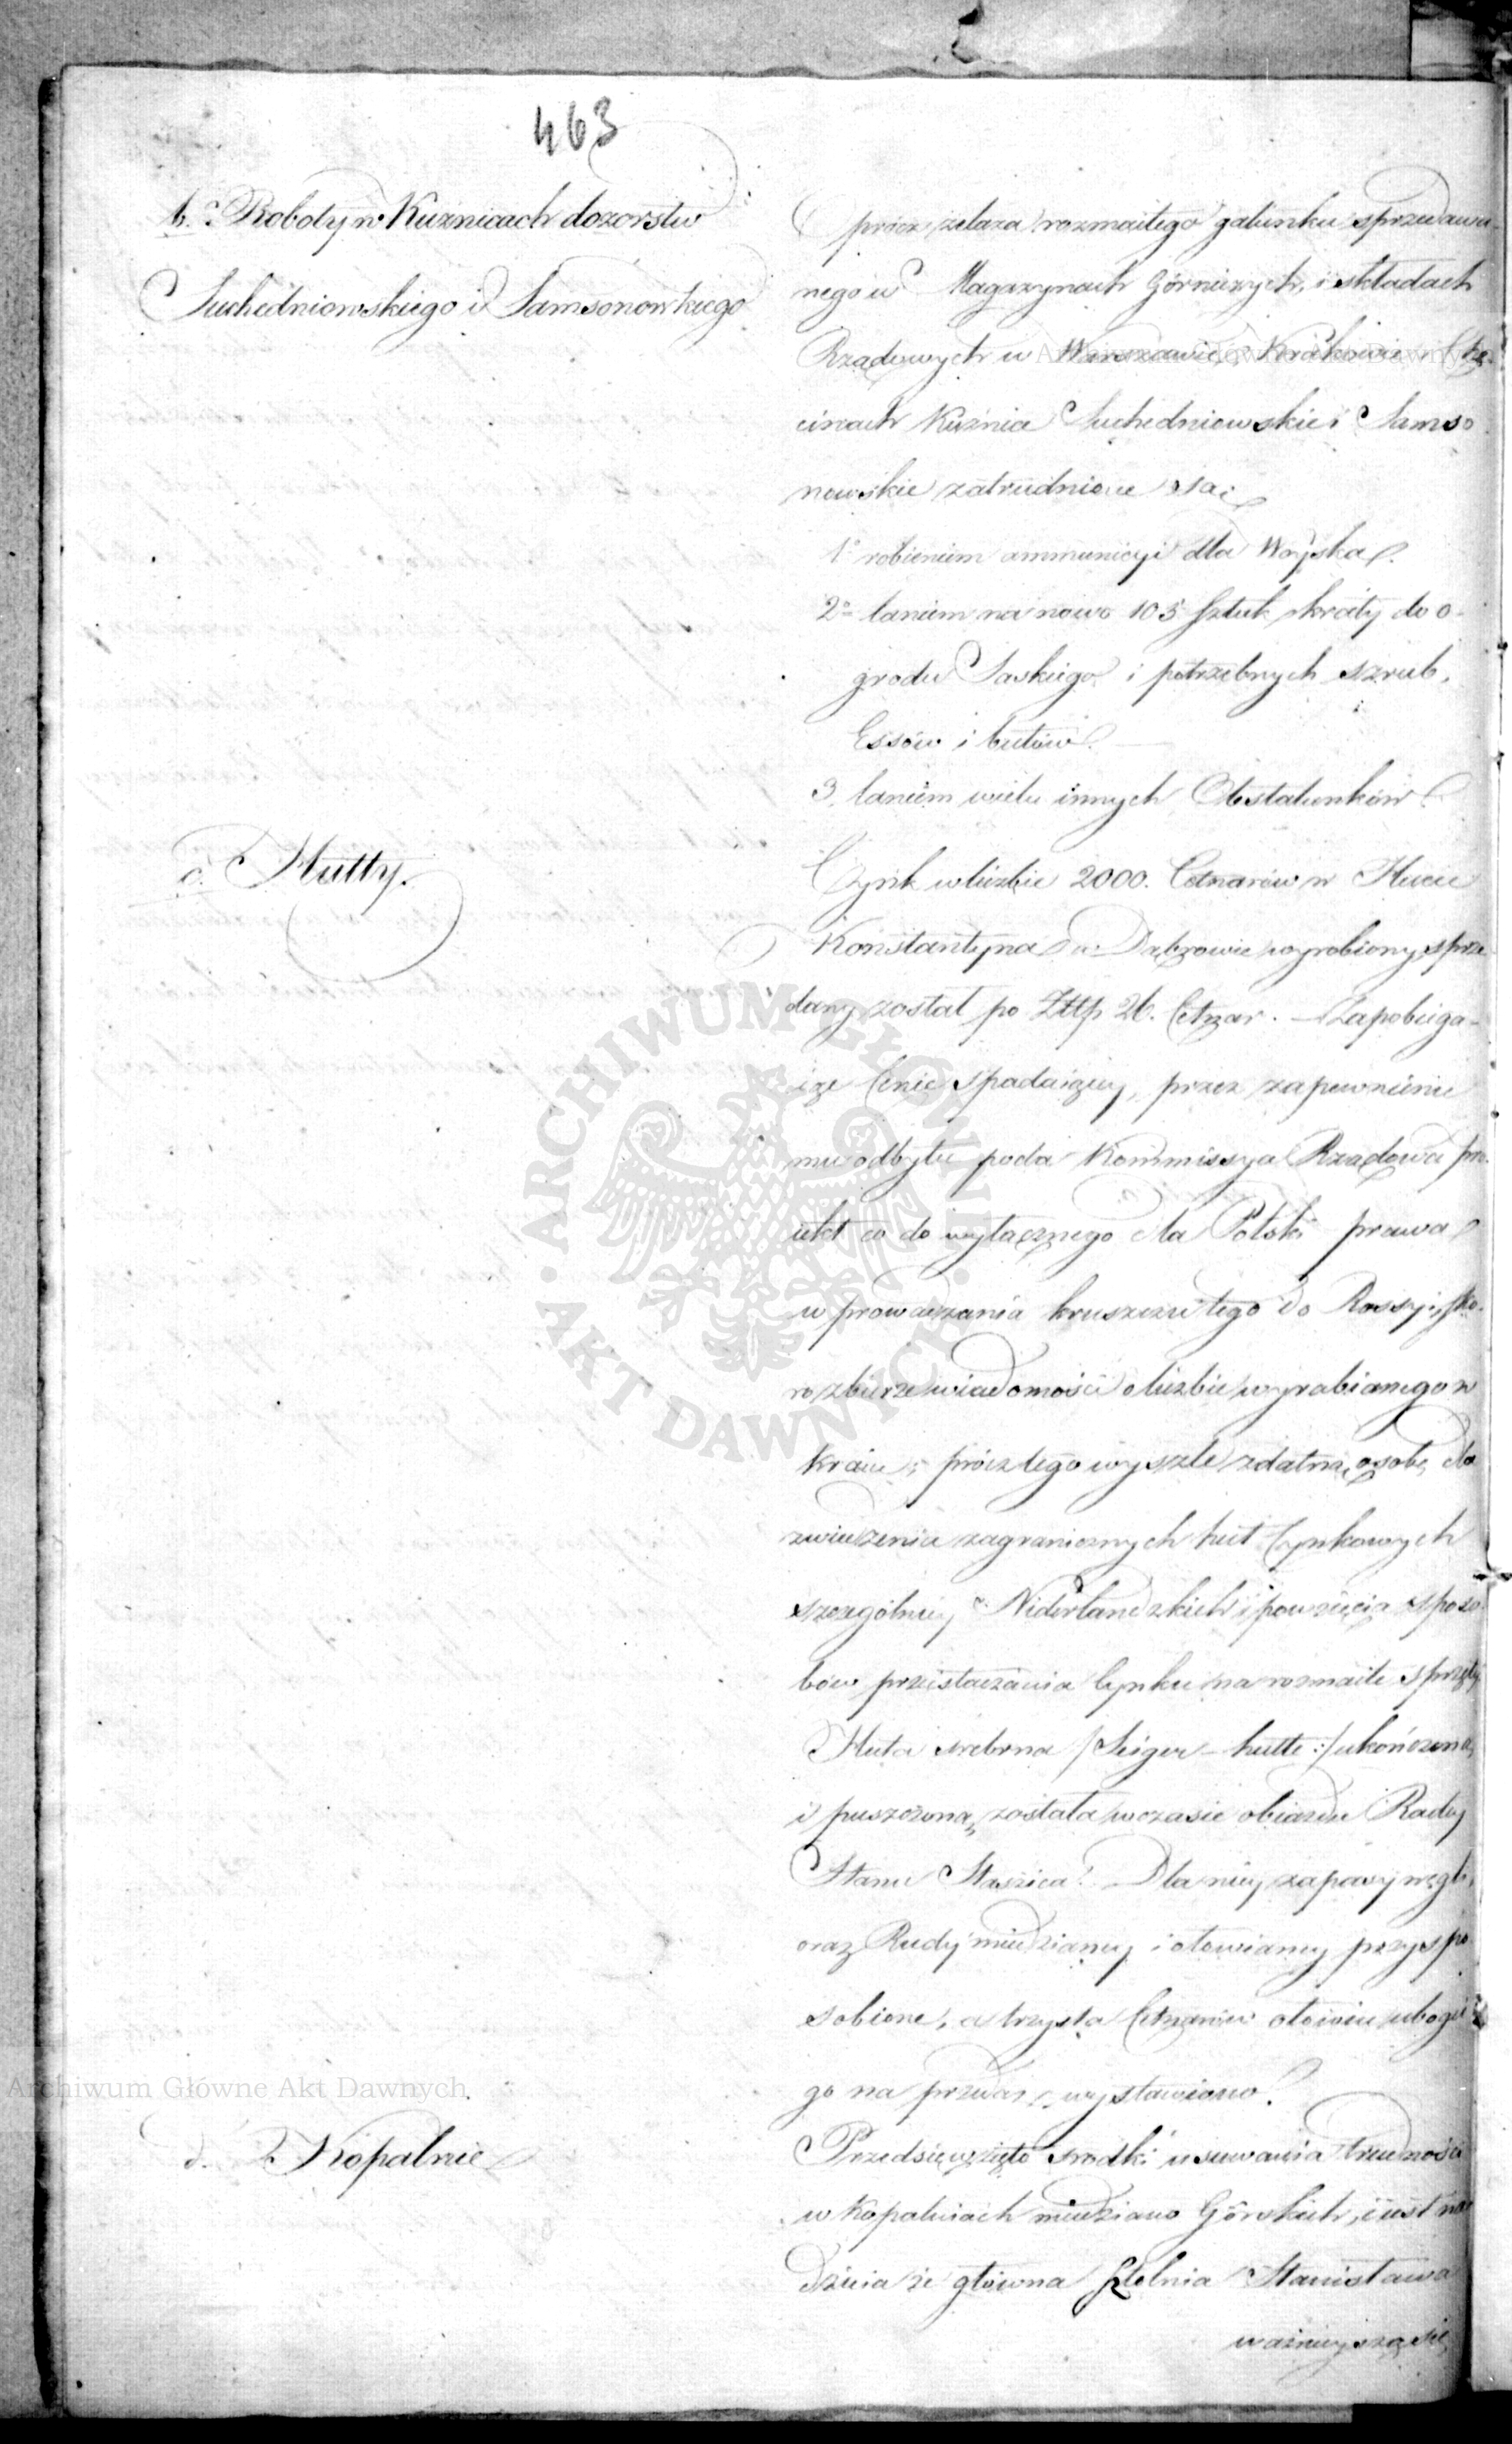 463
b. Roboty w Kuznicach dozorstw
Suchedniowskiego i Samsonowskiego
prócz żelaza rozmaitego gatunku sprzedawa-
nego w Magazynach Górniczych, i składach
Rządowych w Warszawie, Krakowie i Chę-
cinach Kuźnice Suchedniowskie i Samso
nowskie zatrudnione są:
1° robieniem ammunicyi dla Woyska.
2° laniem na nowo 103 sztuk kraty do o-
grodu Saskiego i potrzebnych szrub,
Essów i butów.
3. laniem wielu innych Obstalunków
c. Hutty.
Cynk w liczbie 2000. Cetnarów w Hucie
Konstantyna w Dąbrowie wyrobiony, sprze-
dany został po Złtp 26. Cetnar. – Zapobiega-
iąc Cenie spadaiącey, przez zapewnienie
mu odbytu poda Kommissya Rządowa pro-
iekt co do wyłącznego dla Polski prawa
wprowadzania kruszcu tego do Rossyi, sko-
ro zbierze wiadomości o liczbie wyrabianego w
kraiu; prócz tego wyszle zdatną osobę do
zwiedzenia zagranicznych hut Cynkowych
szczególniey Niderlandzkich i powzięcia sposo-
bów przistaczania Cynku na rozmaite sprzęty
Huta srebrna /Seiger-hutte:/ ukończona,
i puszczona, została w czasie obiazdu Radcy
Stanu Staszica. Dla niey zapasy węgli,
oraz Rudy miedzianey i ołowianey przyspo
sobione, a trzysta Cetnarów ołowiu ubogie
go na przedaż wystawiono.
Archiwum Główne Akt Dawnych
d. Kopalnie
Przedsięwzięto srodki usuwania trudności
w Kopalniach miedziano Górskich, iest na
dzieia że główna Sztolnia Stanisława
ważnieyszą się
ARCHIWUM GŁÓWNE
AKT DAWNYCH